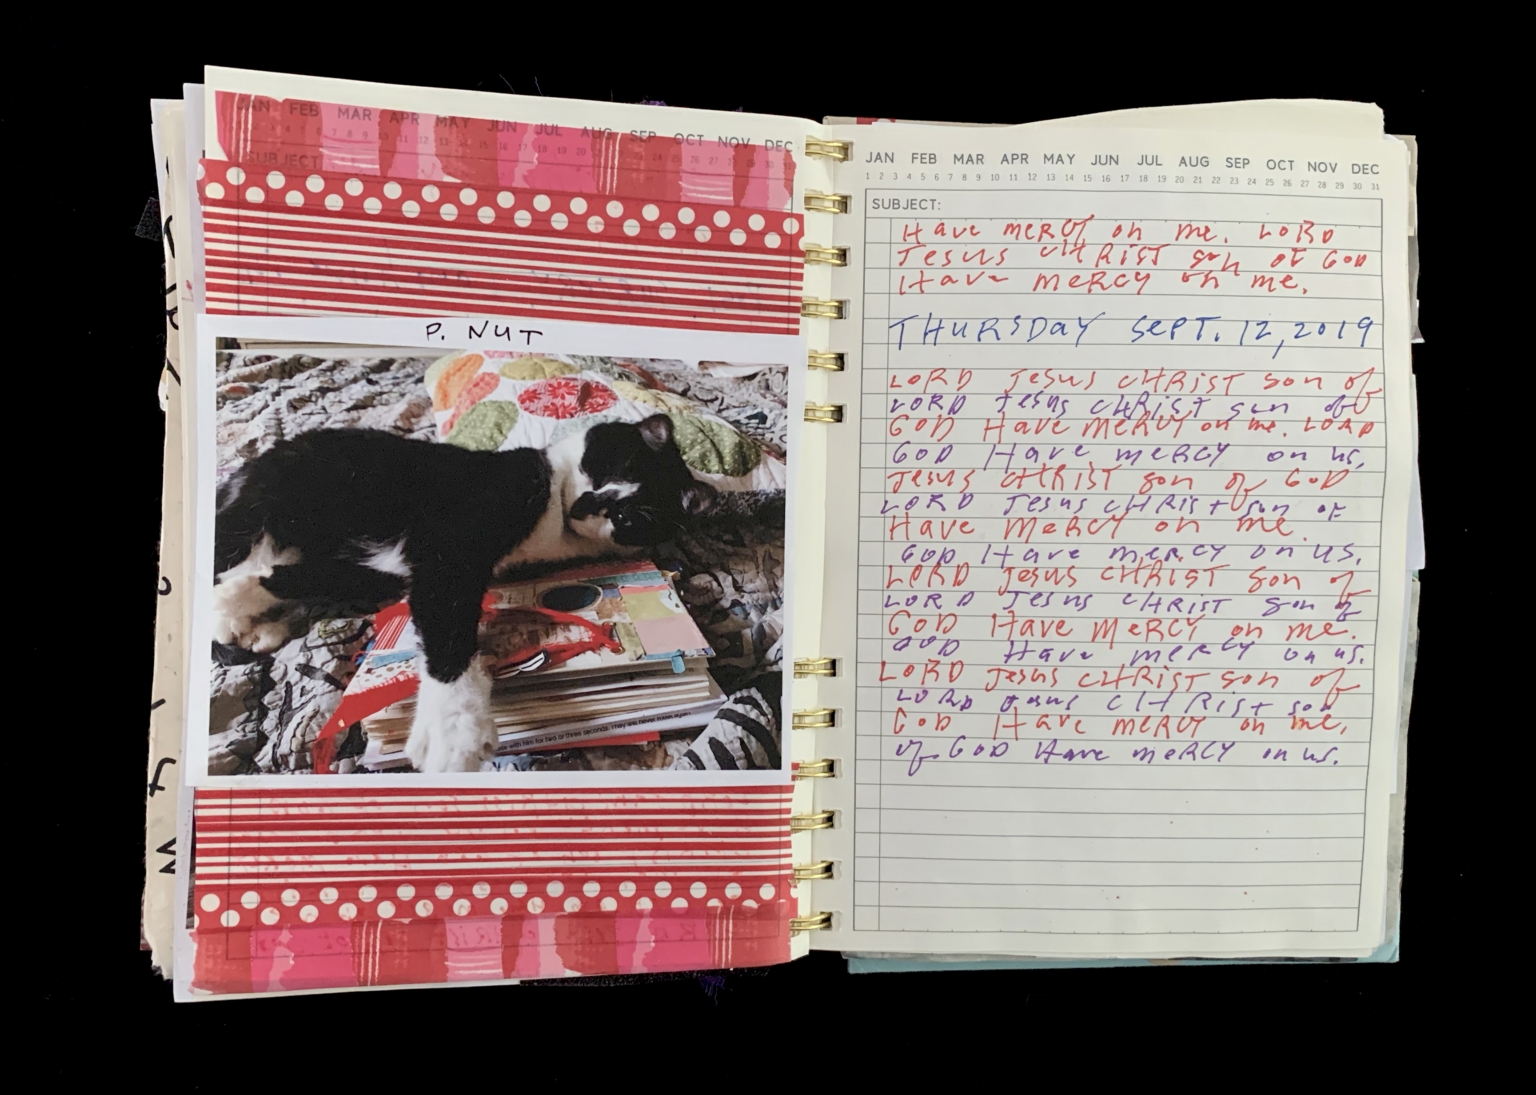 JAN FEB MAR APR MAY JUN JUL AUG SEP OCT NOV DEC
SUBJECT
P. NUT
with him for two or three seconds.
JAN FEB MAR APR MAY JUN JUL AUG SEP OCT NOV DEC
1 2 3 4 5 6 7 8 9 10 11 12 13 14 15 16 17 18 19 20 21 22 23 24 25 26 27 28 29 30 31
SUBJECT:
Have meRCY on me. LoRD
Jesus cHRIST son of GoD
Have meRCY on me.
THURSDaY SePT. 12, 2019
LoRD Jesus cHRisT son of
LoRD Jesus cHRisT son of
GoD Have meRCY on me. LoRD
GoD Have meRCY on us.
Jesus cHRIST son of GoD
LoRD Jesus cHRist son of
Have meRCY on me.
GoD Have meRCY on us.
LoRD Jesus cHRisT son of
LoRD Jesus cHRisT son of
GoD Have meRCY on me.
GoD Have meRCY on us.
LoRD Jesus cHRisT son of
LoRD Jesus cHRist son
GoD Have meRCY on me.
of GoD Have meRCY on us.